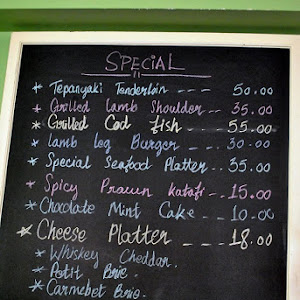 SPECIAL
* Tepanyaki Tenderloin --- 50.00
* Grilled Lamb Shoulder --- 35.00
* Grilled Cod fish --- 55.00
* Lamb Leg Burger --- 30.00
* Special Seafood Platter -- 35.00
* Spicy Prawn Katafi -- 15.00
* Chocolate Mint Cake -- 10.00
* Cheese Platter --- 18.00
* Whiskey Cheddar.
* Petit Brie.
* Carmebet Brie.